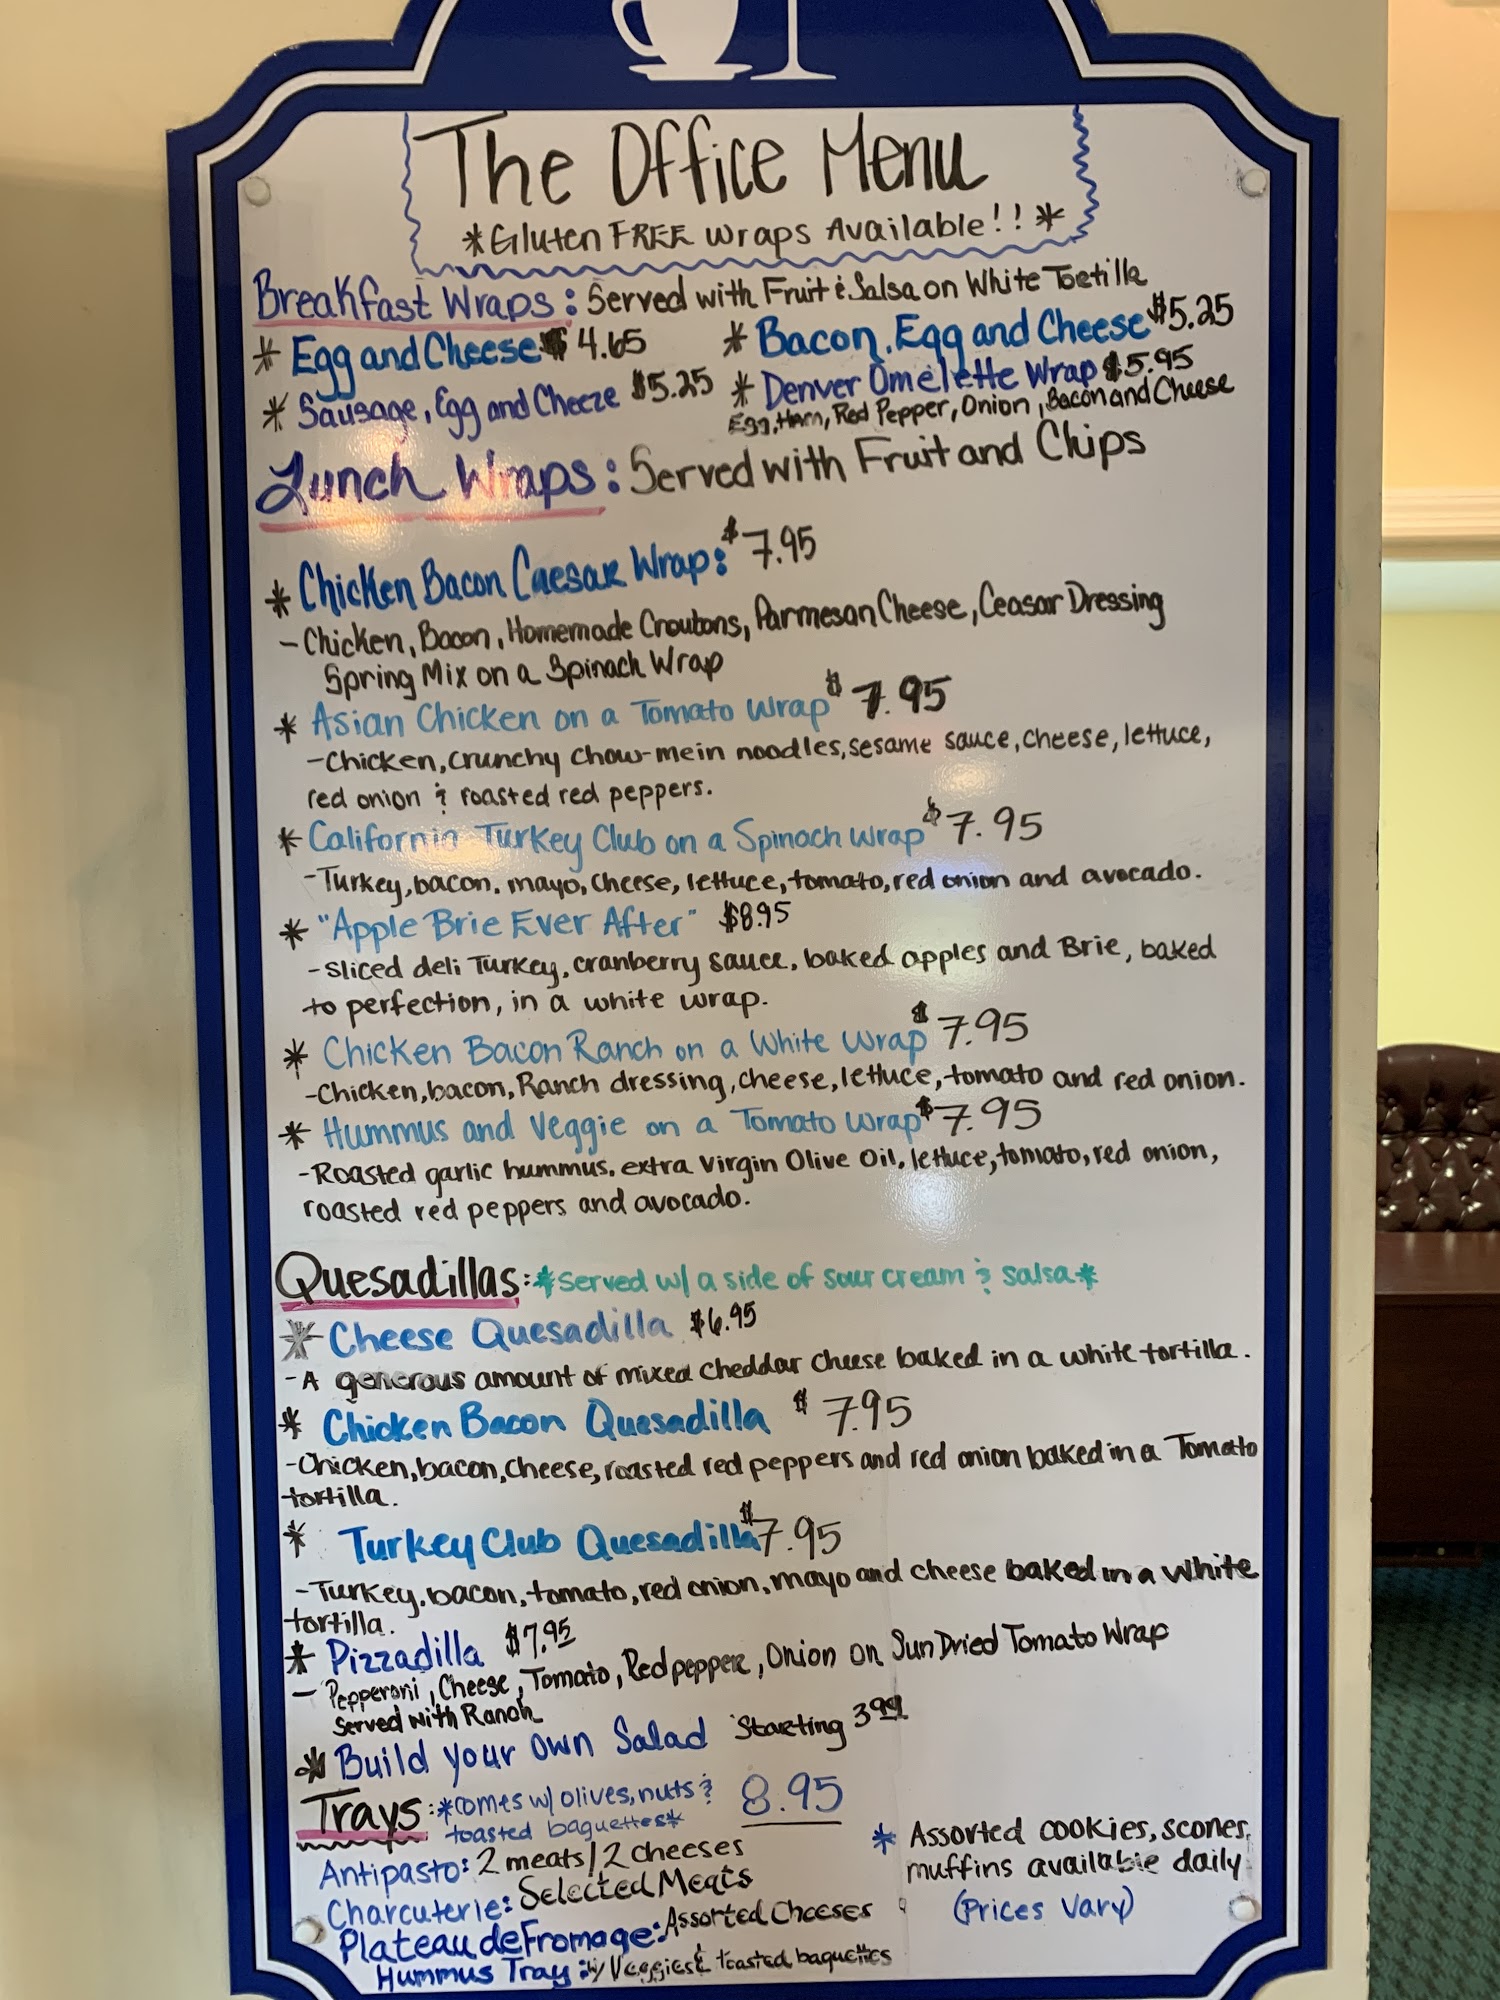 The Office Menu
*Gluten FREE wraps Available!!*
Breakfast Wraps: Served with Fruit & Salsa on White Tortilla
* Egg and Cheese $4.65
* Bacon, Egg and Cheese $5.25
* Sausage, Egg and Cheeze $5.25
* Denver Omelette Wrap $5.95
Egg, Ham, Red Pepper, Onion, Bacon and Cheese
Lunch Wraps: Served with Fruit and Chips
* Chicken Bacon Caesar Wrap: $7.95
- Chicken, Bacon, Homemade Croutons, Parmesan Cheese, Ceasar Dressing
Spring Mix on a Spinach Wrap
* Asian Chicken on a Tomato Wrap $7.95
- Chicken, crunchy chow-mein noodles, sesame sauce, cheese, lettuce,
red onion & roasted red peppers.
* California Turkey Club on a Spinach wrap $7.95
- Turkey, bacon, mayo, cheese, lettuce, tomato, red onion and avocado.
* "Apple Brie Ever After" $8.95
- Sliced deli Turkey, cranberry sauce, baked apples and Brie, baked
to perfection, in a white wrap.
* Chicken Bacon Ranch on a White wrap $7.95
- Chicken, bacon, Ranch dressing, cheese, lettuce, tomato and red onion.
* Hummus and Veggie on a Tomato wrap $7.95
- Roasted garlic hummus, extra Virgin Olive Oil, lettuce, tomato, red onion,
roasted red peppers and avocado.
Quesadillas: *Served w/ a side of sour cream & salsa*
* Cheese Quesadilla $6.95
- A generous amount of mixed cheddar cheese baked in a white tortilla.
* Chicken Bacon Quesadilla $7.95
- Chicken, bacon, cheese, roasted red peppers and red onion baked in a Tomato
tortilla.
* Turkey Club Quesadilla $7.95
- Turkey, bacon, tomato, red onion, mayo and cheese baked in a white
tortilla.
* Pizzadilla $7.95
- Pepperoni, Cheese, Tomato, Red pepper, Onion on Sun Dried Tomato Wrap
Served with Ranch
* Build your own Salad Starting 3.99
Trays: *comes w/ olives, nuts & 8.95
toasted baguettes*
Antipasto: 2 meats/2 cheeses
Charcuterie: Selected Meats
Plateau de Fromage: Assorted Cheeses
Hummus Tray: w/ Veggies & toasted baguettes
* Assorted cookies, scones,
muffins available daily
(Prices Vary)